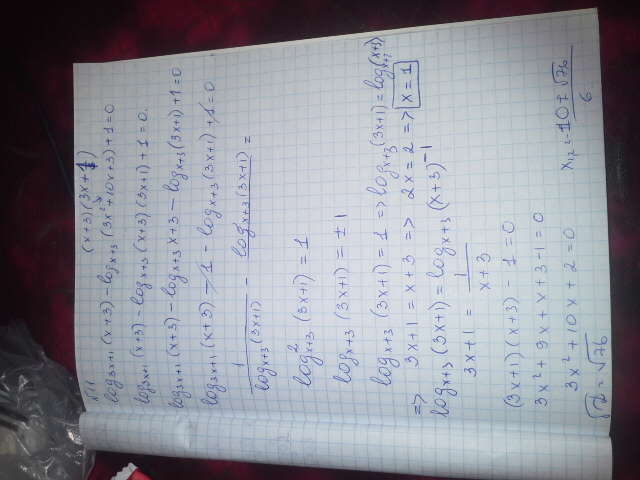 (x+3)(3x+1)
№1
log₃ₓ₊₁(x+3) − logₓ₊₃(3x²+10x+3)+1=0
log₃ₓ₊₁(x+3) − logₓ₊₃(x+3)(3x+1)+1=0.
log₃ₓ₊₁(x+3) − logₓ₊₃ x+3 − logₓ₊₃(3x+1)+1=0
log₃ₓ₊₁(x+3) − 1 − logₓ₊₃(3x+1)+1=0
1/logₓ₊₃(3x+1) − logₓ₊₃(3x+1) =
log²ₓ₊₃(3x+1)=1
logₓ₊₃(3x+1)=±1
logₓ₊₃(3x+1)=1 => logₓ₊₃(3x+1)=logₓ₊₃(x+3)
=> 3x+1=x+3 => 2x=2 => x=1
logₓ₊₃(3x+1)=logₓ₊₃(x+3)⁻¹
3x+1 = 1/(x+3)
(3x+1)(x+3)−1=0
3x²+9x+x+3−1=0
3x²+10x+2=0
√D=√76 x₁,₂=−10±√76/6